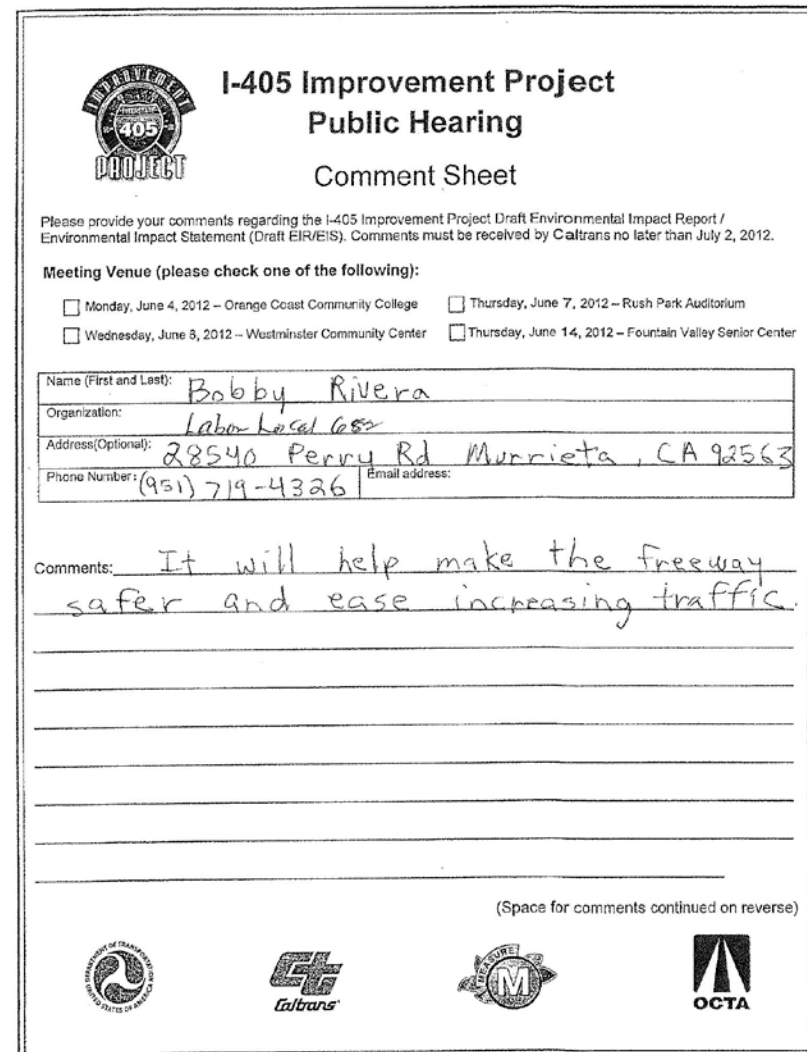 IMPROVEMENT
405
PROJECT
I-405 Improvement Project
Public Hearing
Comment Sheet
Please provide your comments regarding the I-405 Improvement Project Draft Environmental Impact Report /
Environmental Impact Statement (Draft EIR/EIS). Comments must be received by Caltrans no later than July 2, 2012.
Meeting Venue (please check one of the following):
Monday, June 4, 2012 – Orange Coast Community College
Thursday, June 7, 2012 – Rush Park Auditorium
Wednesday, June 6, 2012 – Westminster Community Center
Thursday, June 14, 2012 – Fountain Valley Senior Center
Name (First and Last): Bobby Rivera
Organization: Labor Local 652
Address(Optional): 28540 Perry Rd Murrieta, CA 92563
Phone Number: (951) 719-4326 Email address:
Comments: It will help make the freeway
safer and ease increasing traffic.
(Space for comments continued on reverse)
DEPARTMENT OF TRANSPORTATION
UNITED STATES OF AMERICA
Caltrans
MEASURE
M
OCTA